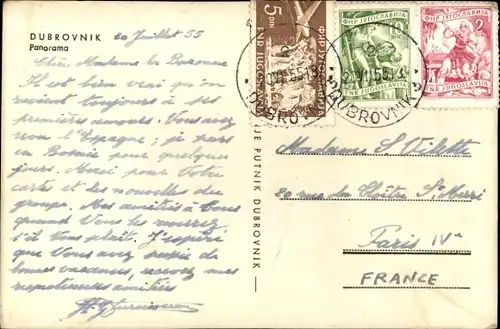 DUBROVNIK
Panorama
20 Juillet 55
Chère Madame la Baronne
Il est bien vrai qu'on
revient toujours à ses
premières amours. Vous avez
vu l'Espagne; je pars
en Bosnie pour quelques
jours. Merci pour votre
carte et les nouvelles du
groupe. Mes amitiés à tous
quand Vous les
s'il Vous plaît. J'espère
que Vous avez
bonnes vacances, recevez mes
amitiés
JE PUTNIK DUBROVNIK
5 DIN
ФНР ЈУГОСЛАВИЈА
FNR JUGOSLAVIJA
10
FNR JUGOSLAVIJA
ФНР ЈУГОСЛАВИЈА
2
FNR JUGOSLAVIJA
DUBROVNIK
DUBROVNIK 2
Madame S.
20 rue du Cloître St Merri
Paris IVe
FRANCE